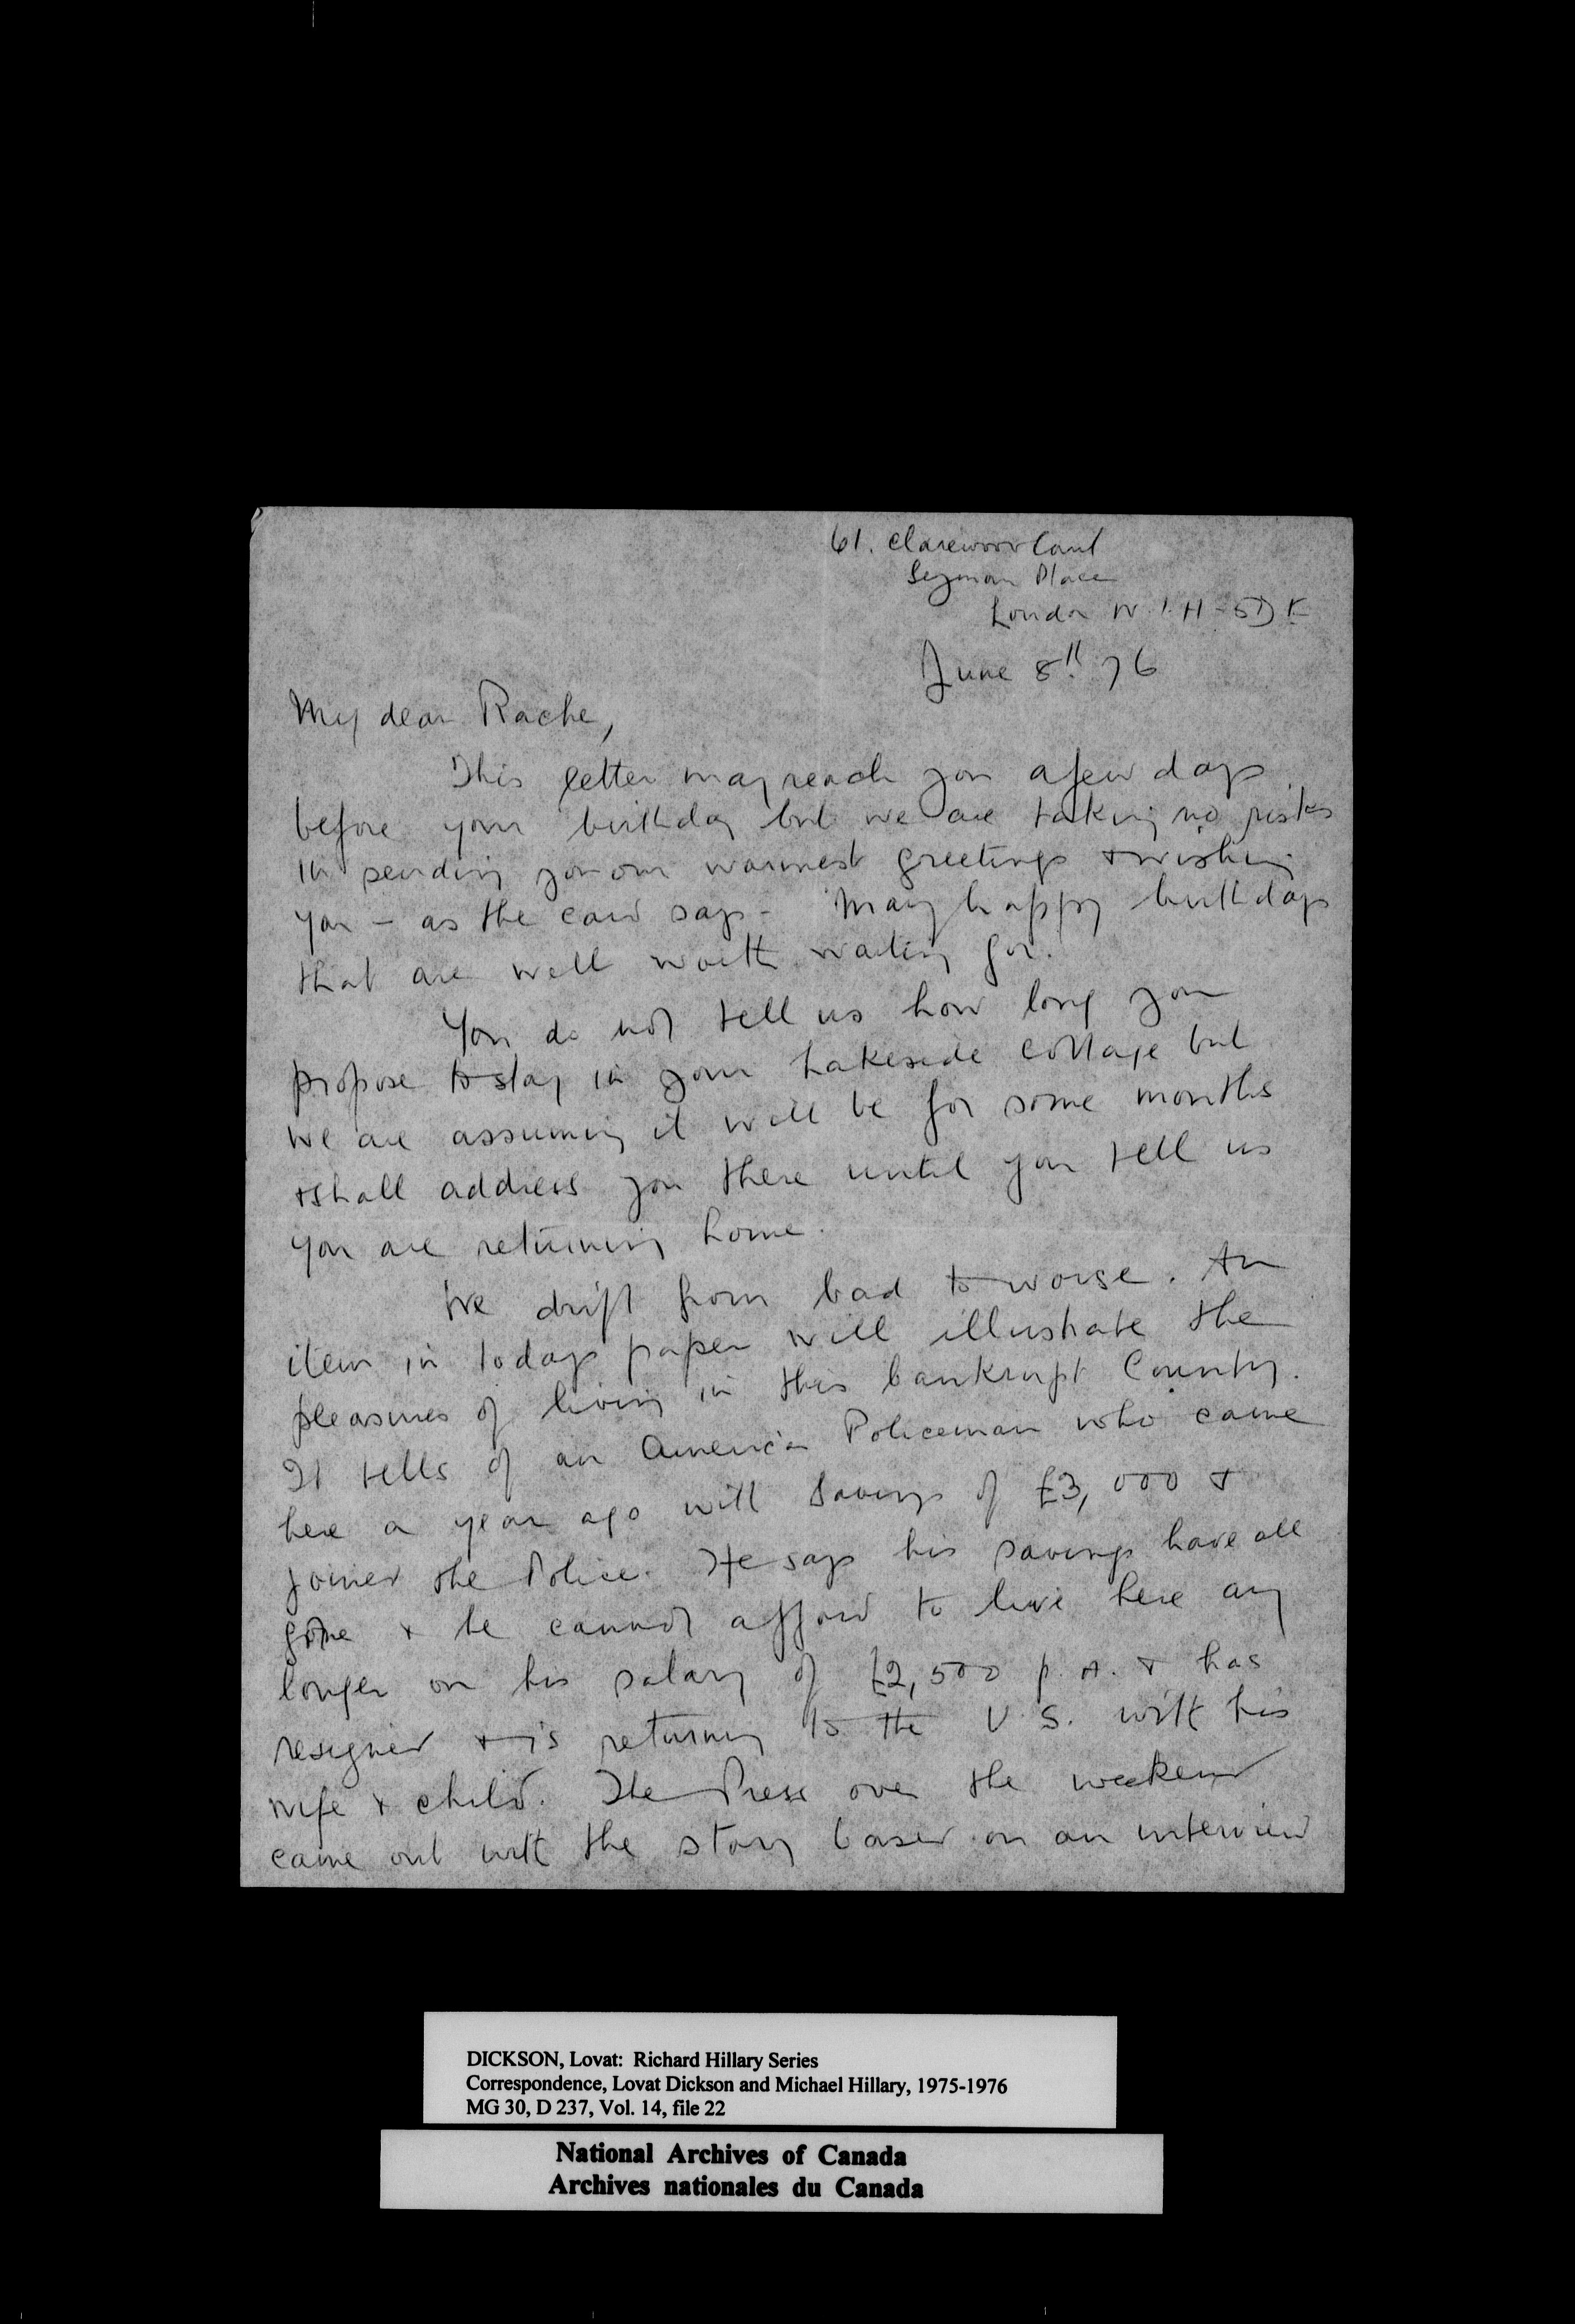 61. Clarewood Court
Seymour Place
London W.1.H-5DE
June 8th 76
My dear Rache,
This letter may reach you a few days
before your birthday but we are taking no risks
in sending you our warmest greetings & wishing
you - as the card says - Many happy birthdays
that are well worth waiting for.
You do not tell us how long you
propose to stay in your Lakeside Cottage but
we are assuming it will be for some months
& shall address you there until you tell us
you are returning home.
We drift from bad to worse. An
item in todays paper will illustrate the
pleasures of living in this bankrupt Country.
It tells of an American Policeman who came
here a year ago with savings of £3,000 &
joined the Police. He says his savings have all
gone & he cannot afford to live here any
longer on his salary of £2,500 p.a. & has
resigned & is returning to the U.S. with his
wife & child. The Press over the weekend
came out with the story based on an interview
DICKSON, Lovat: Richard Hillary Series
Correspondence, Lovat Dickson and Michael Hillary, 1975-1976
MG 30, D 237, Vol. 14, file 22
National Archives of Canada
Archives nationales du Canada